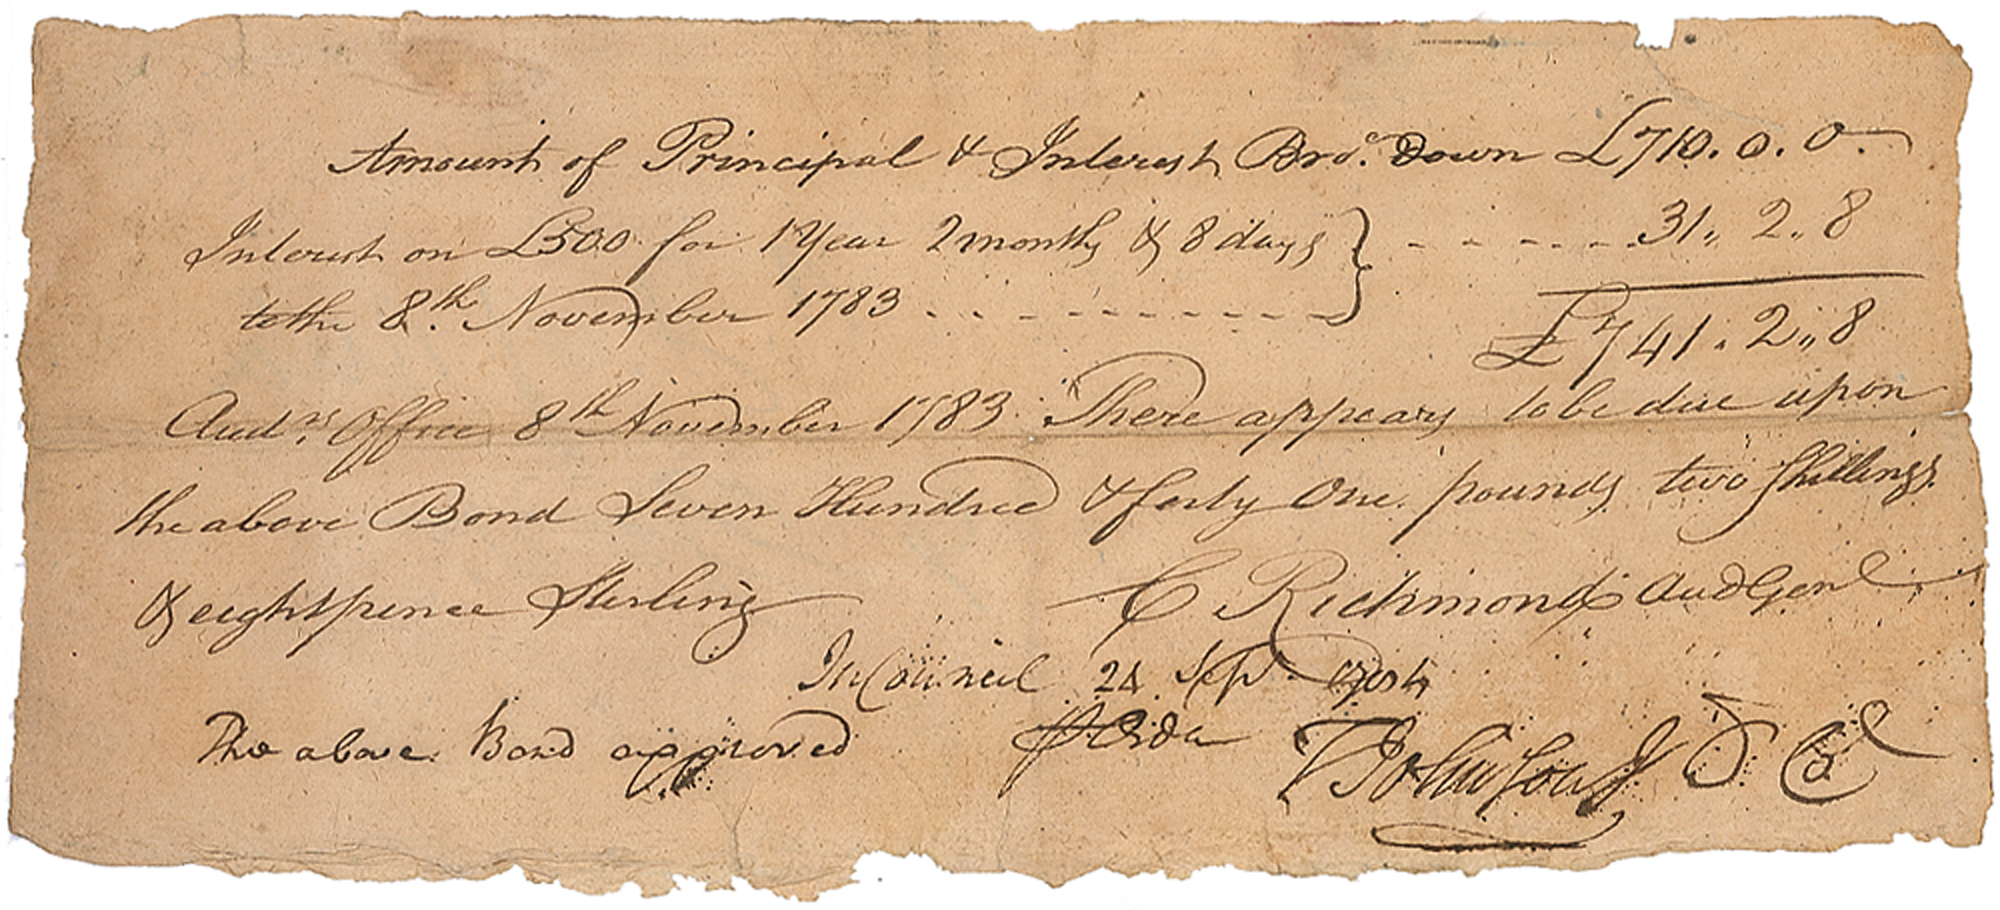 Amount of Principal & Interest Bro.t Down £710. 0. 0
Interest on £500 for 1 Year 2 months & 8 days - - - - - - 31,, 2,, 8
to the 8th. November 1783 - - - - - - - - - -
£741. 2,, 8
Aud.rs Office 8th November 1783 There appears to be due upon
the above Bond Seven Hundred & forty One pounds two Shillings
& eightpence Sterling C Richmond AudGenl
In Council 24 Sepr. 1784
The above Bond approved J Johnson